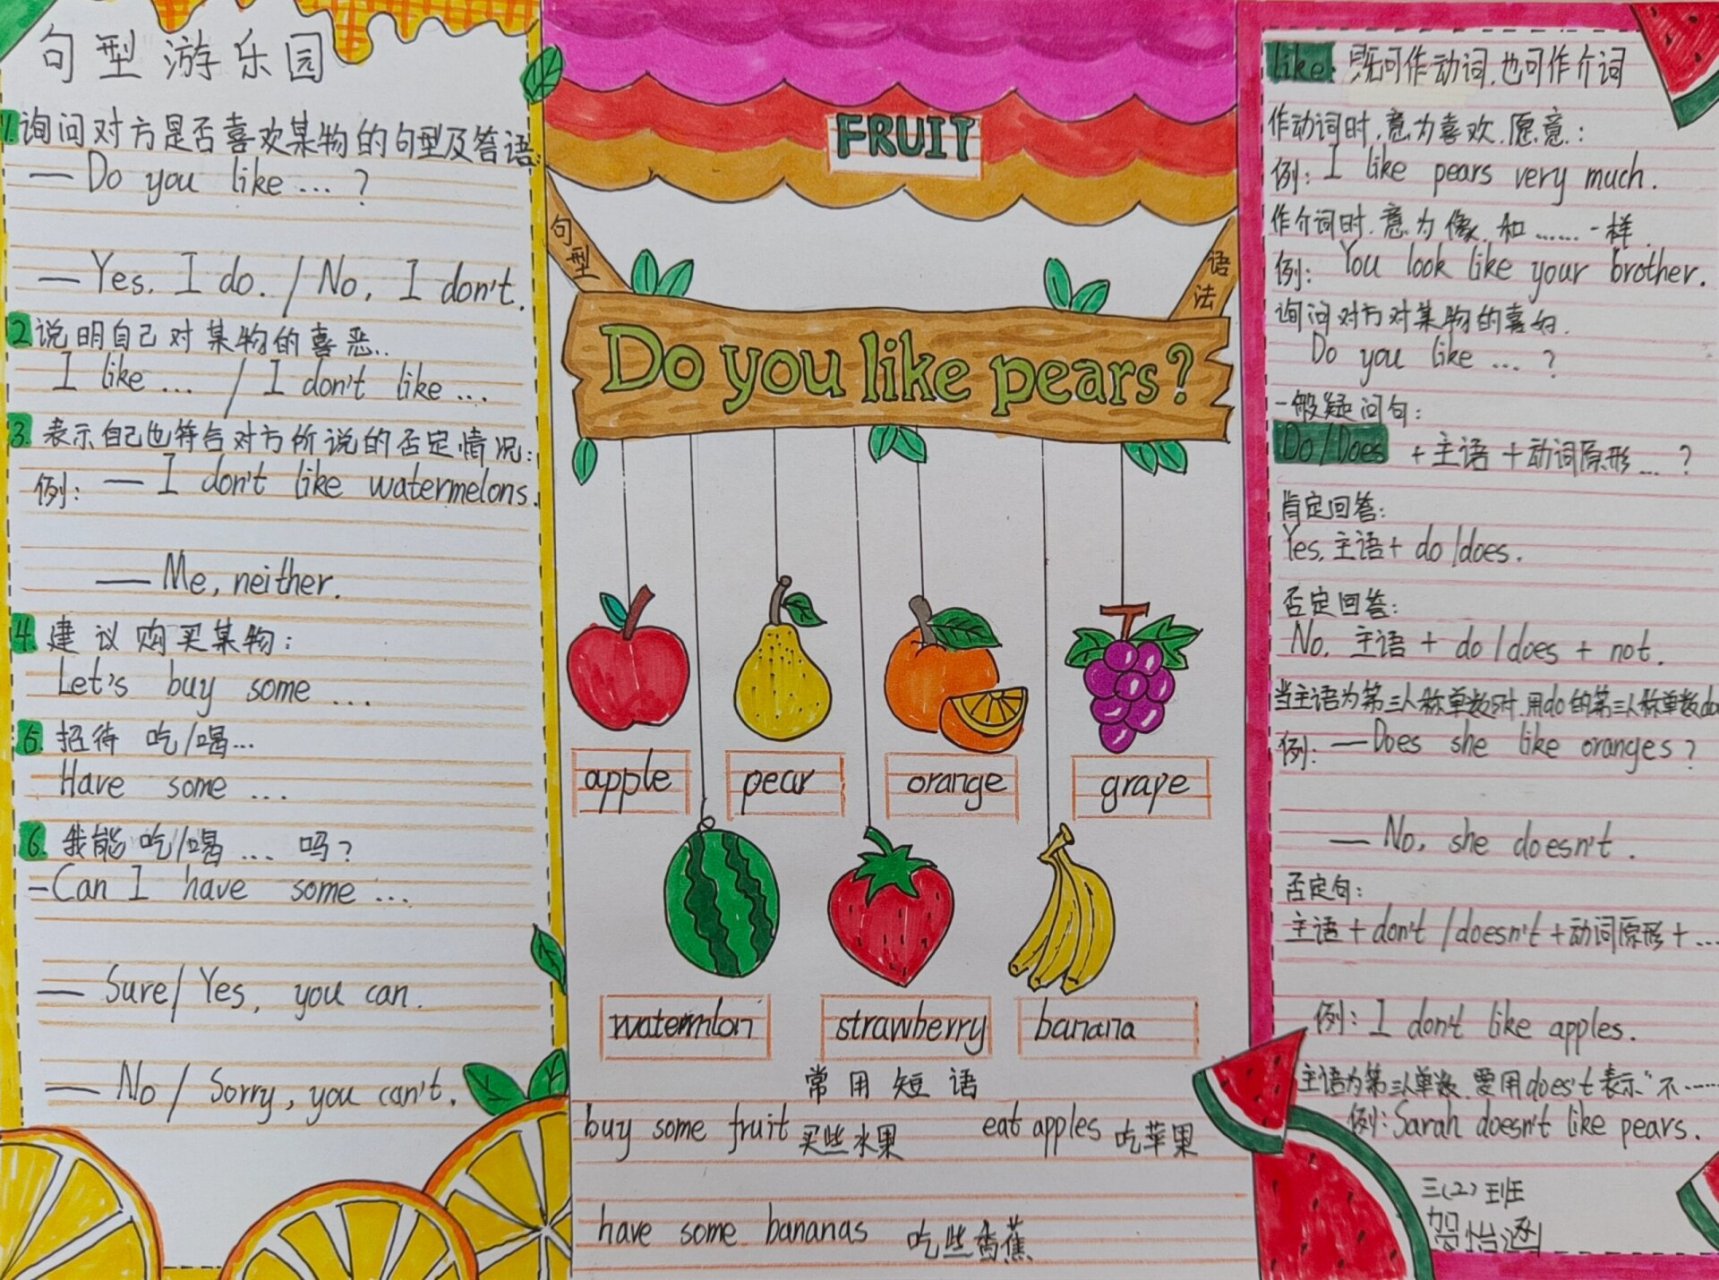 句型游乐园
1.询问对方是否喜欢某物的句型及答语:
— Do you like ... ?
— Yes. I do. / No, I don't.
2.说明自己对某物的喜恶..
I like ... / I don't like ...
3.表示自己也符合对方所说的否定情况:
例: — I don't like watermelons.
— Me, neither.
4.建议购买某物:
Let's buy some ...
5.招待吃/喝...
Have some ...
6.我能吃/喝 ... 吗?
-Can I have some ...
— Sure/ Yes, you can.
— No / Sorry, you can't.
FRUIT
句型
语法
Do you like pears?
apple
pear
orange
grape
watermlon
strawberry
banana
常用短语
buy some fruit 买些水果 eat apples 吃苹果
have some bananas 吃些香蕉
like: 既可作动词.也可作介词
作动词时.意为喜欢.愿意:
例: I like pears very much.
作介词时.意为像.和......一样.
例: You look like your brother.
询问对方对某物的喜好.
Do you like ... ?
一般疑问句:
Do/Does + 主语 + 动词原形 ... ?
肯定回答:
Yes, 主语+ do/does.
否定回答:
No, 主语 + do/does + not.
当主语为第三人称单数时.用do的第三人称单数do
例: — Does she like oranges?
— No, she doesn't.
否定句:
主语+don't/doesn't+动词原形+...
例: I don't like apples.
主语为第三人单数.要用does't表示"不......
例: Sarah doesn't like pears.
三(2)班
贺怡涵